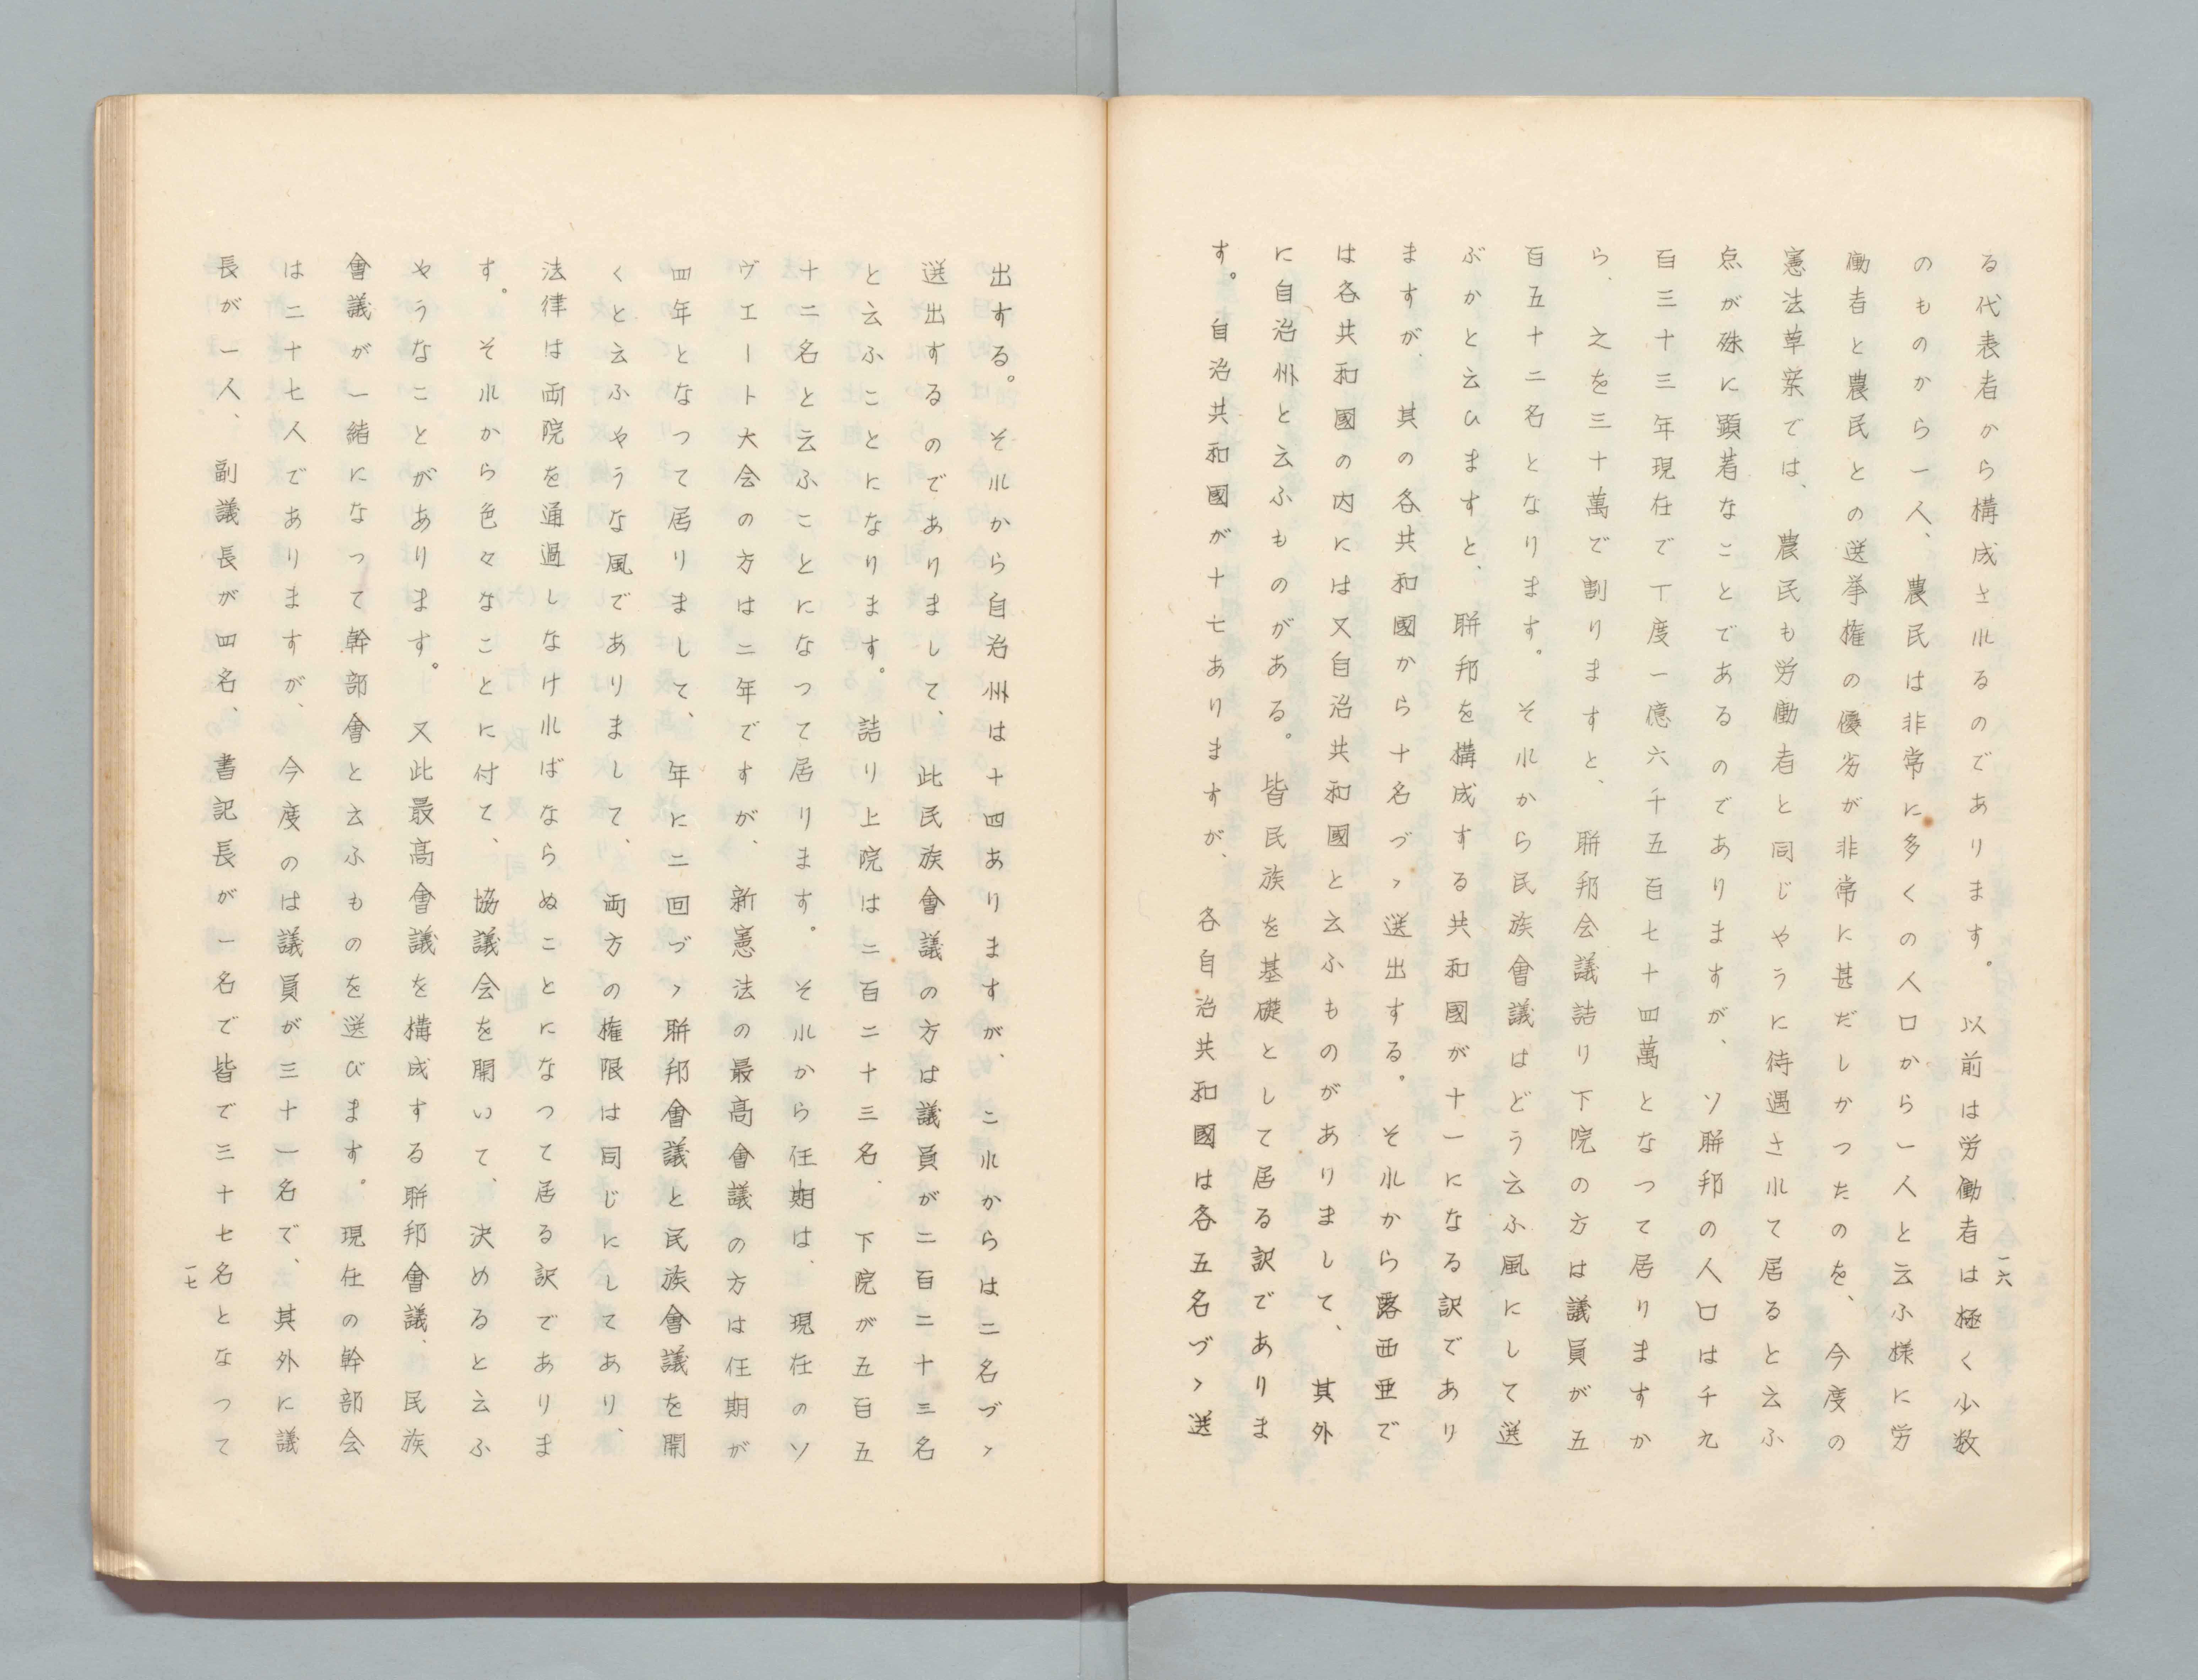 る代表者から構成されるのであります。以前は労働者は極く少数
のものから一人、農民は非常に多くの人口から一人と云ふ様に労
働者と農民との選挙権の優劣が非常に甚だしかつたのを、今度の
憲法草案では、農民も労働者と同じやうに待遇されて居ると云ふ
点が殊に顕著なことであるのでありますが、ソ聯邦の人口は千九
百三十三年現在で丁度一億六千五百七十四萬となつて居りますか
ら、之を三十萬で割りますと、聯邦会議詰り下院の方は議員が五
百五十二名となります。それから民族會議はどう云ふ風にして選
ぶかと云ひますと、聯邦を構成する共和國が十一になる訳であり
ますが、其の各共和國から十名づゝ選出する。それから露西亜で
は各共和國の内には又自治共和國と云ふものがありまして、其外
に自治州と云ふものがある。皆民族を基礎として居る訳でありま
す。自治共和國が十七ありますが、各自治共和國は各五名づゝ選
一六
出する。それから自治州は十四ありますが、これからは二名づゝ
選出するのでありまして、此民族會議の方は議員が二百二十三名
と云ふことになります。詰り上院は二百二十三名、下院が五百五
十二名と云ふことになつて居ります。それから任期は、現在のソ
ヴエート大会の方は二年ですが、新憲法の最高會議の方は任期が
四年となつて居りまして、年に二回づゝ聯邦會議と民族會議を開
くと云ふやうな風でありまして、両方の権限は同じにしてあり、
法律は両院を通過しなければならぬことになつて居る訳でありま
す。それから色々なことに付て、協議会を開いて、決めると云ふ
やうなことがあります。又此最高會議を構成する聯邦會議、民族
會議が一緒になつて幹部會と云ふものを選びます。現在の幹部会
は二十七人でありますが、今度のは議員が三十一名で、其外に議
長が一人、副議長が四名、書記長が一名で皆で三十七名となつて
一七